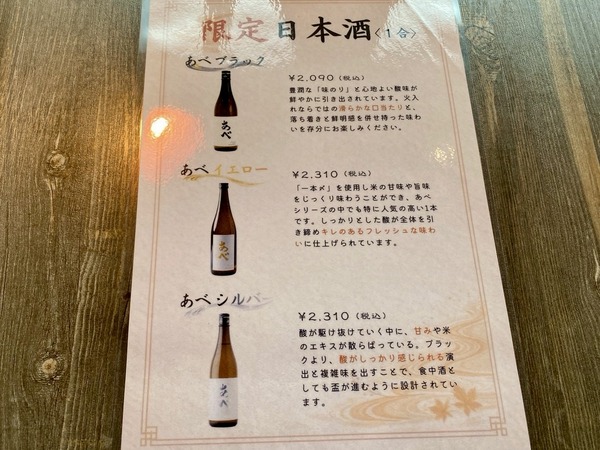 限定日本酒〈1合〉
あべブラック
¥2,090（税込）
豊潤な「味のり」と心地よい酸味が
鮮やかに引き出されています。火入
れならではの滑らかな口当たりと、
落ち着きと鮮明感を併せ持った味わ
いを存分にお楽しみください。
あべ
あべイエロー
¥2,310（税込）
「一本〆」を使用し米の甘味や旨味
をじっくり味わうことができ、あべ
シリーズの中でも特に人気の高い1本
です。しっかりとした酸が全体を引
き締めキレのあるフレッシュな味わ
いに仕上げられています。
あべ
あべシルバー
¥2,310（税込）
酸が駆け抜けていく中に、甘みや米
のエキスが散らばっている。ブラッ
クより、酸がしっかり感じられる演
出と複雑味を出すことで、食中酒と
しても盃が進むように設計されてい
ます。
あべ